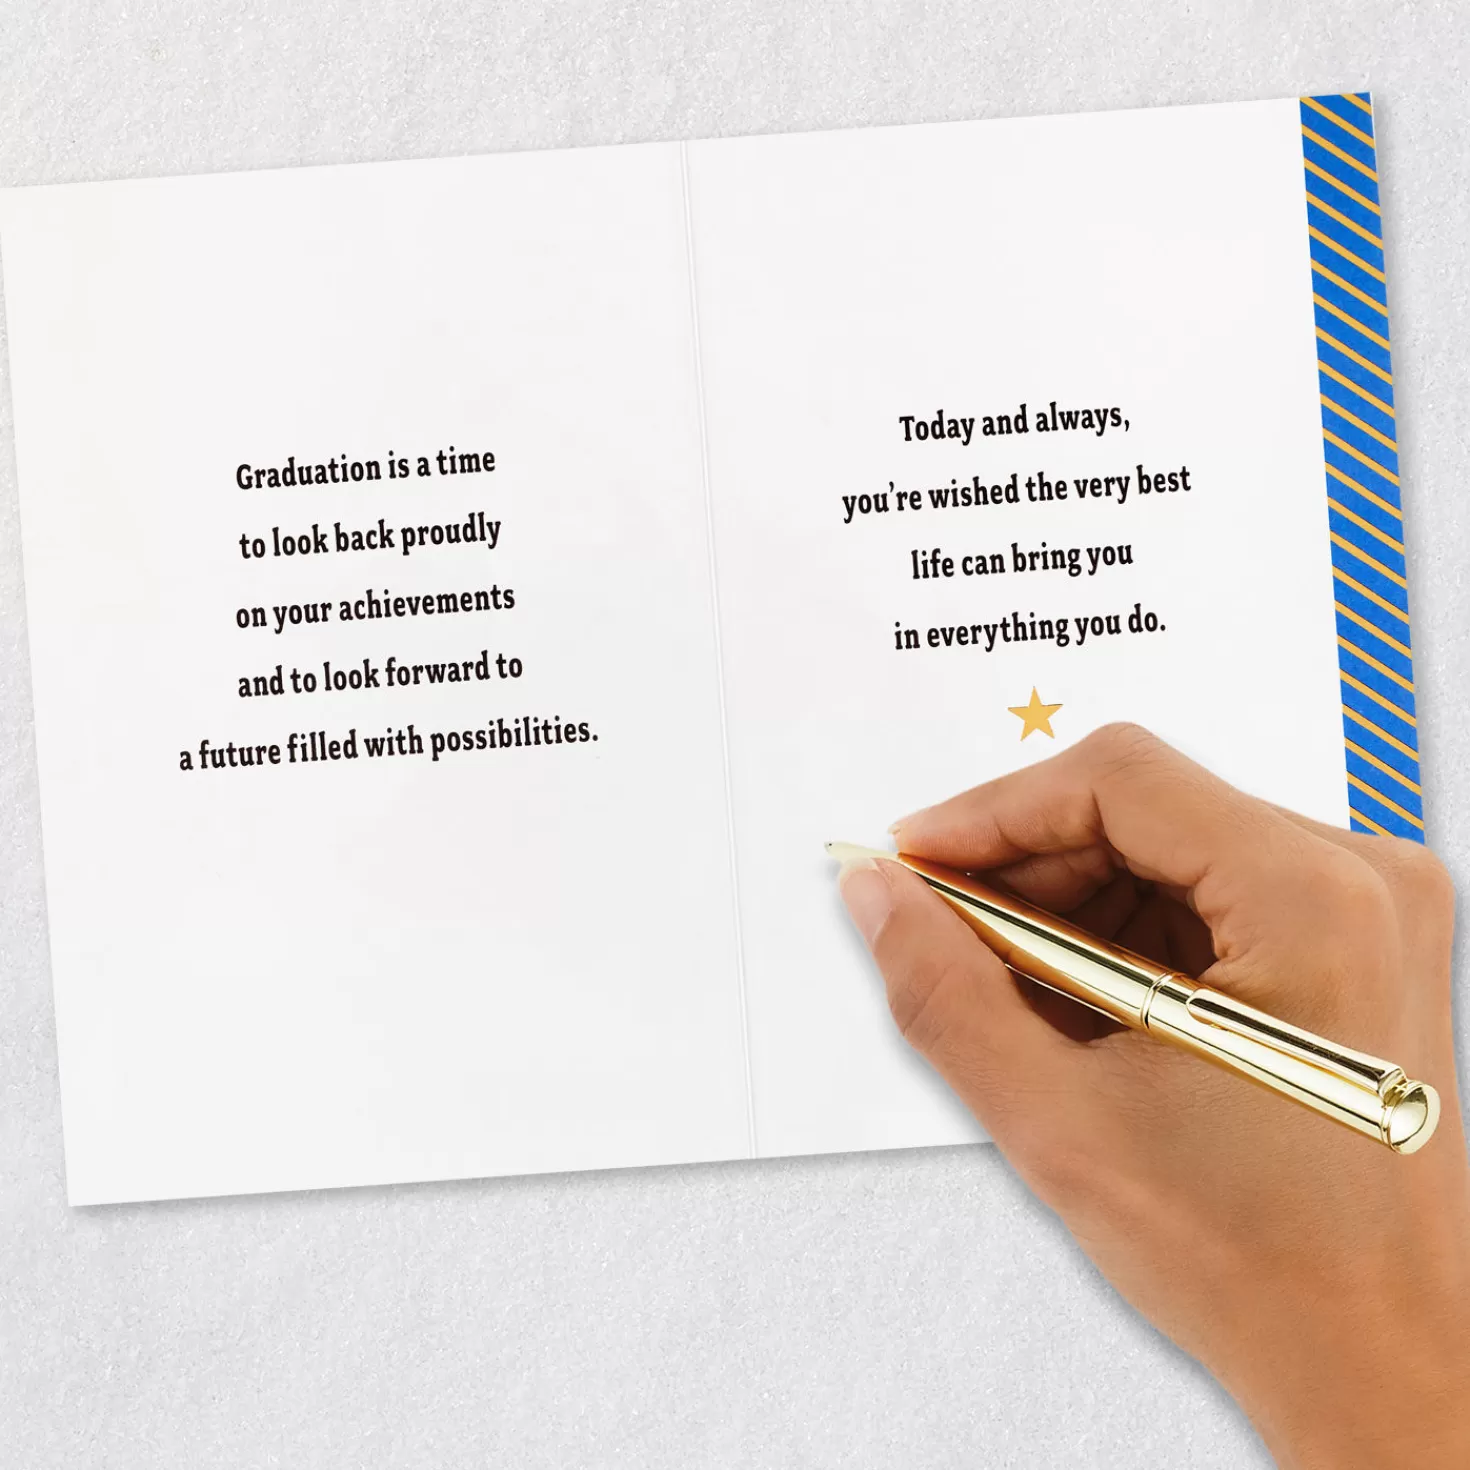 Graduation is a time
to look back proudly
on your achievements
and to look forward to
a future filled with possibilities.
Today and always,
you’re wished the very best
life can bring you
in everything you do.